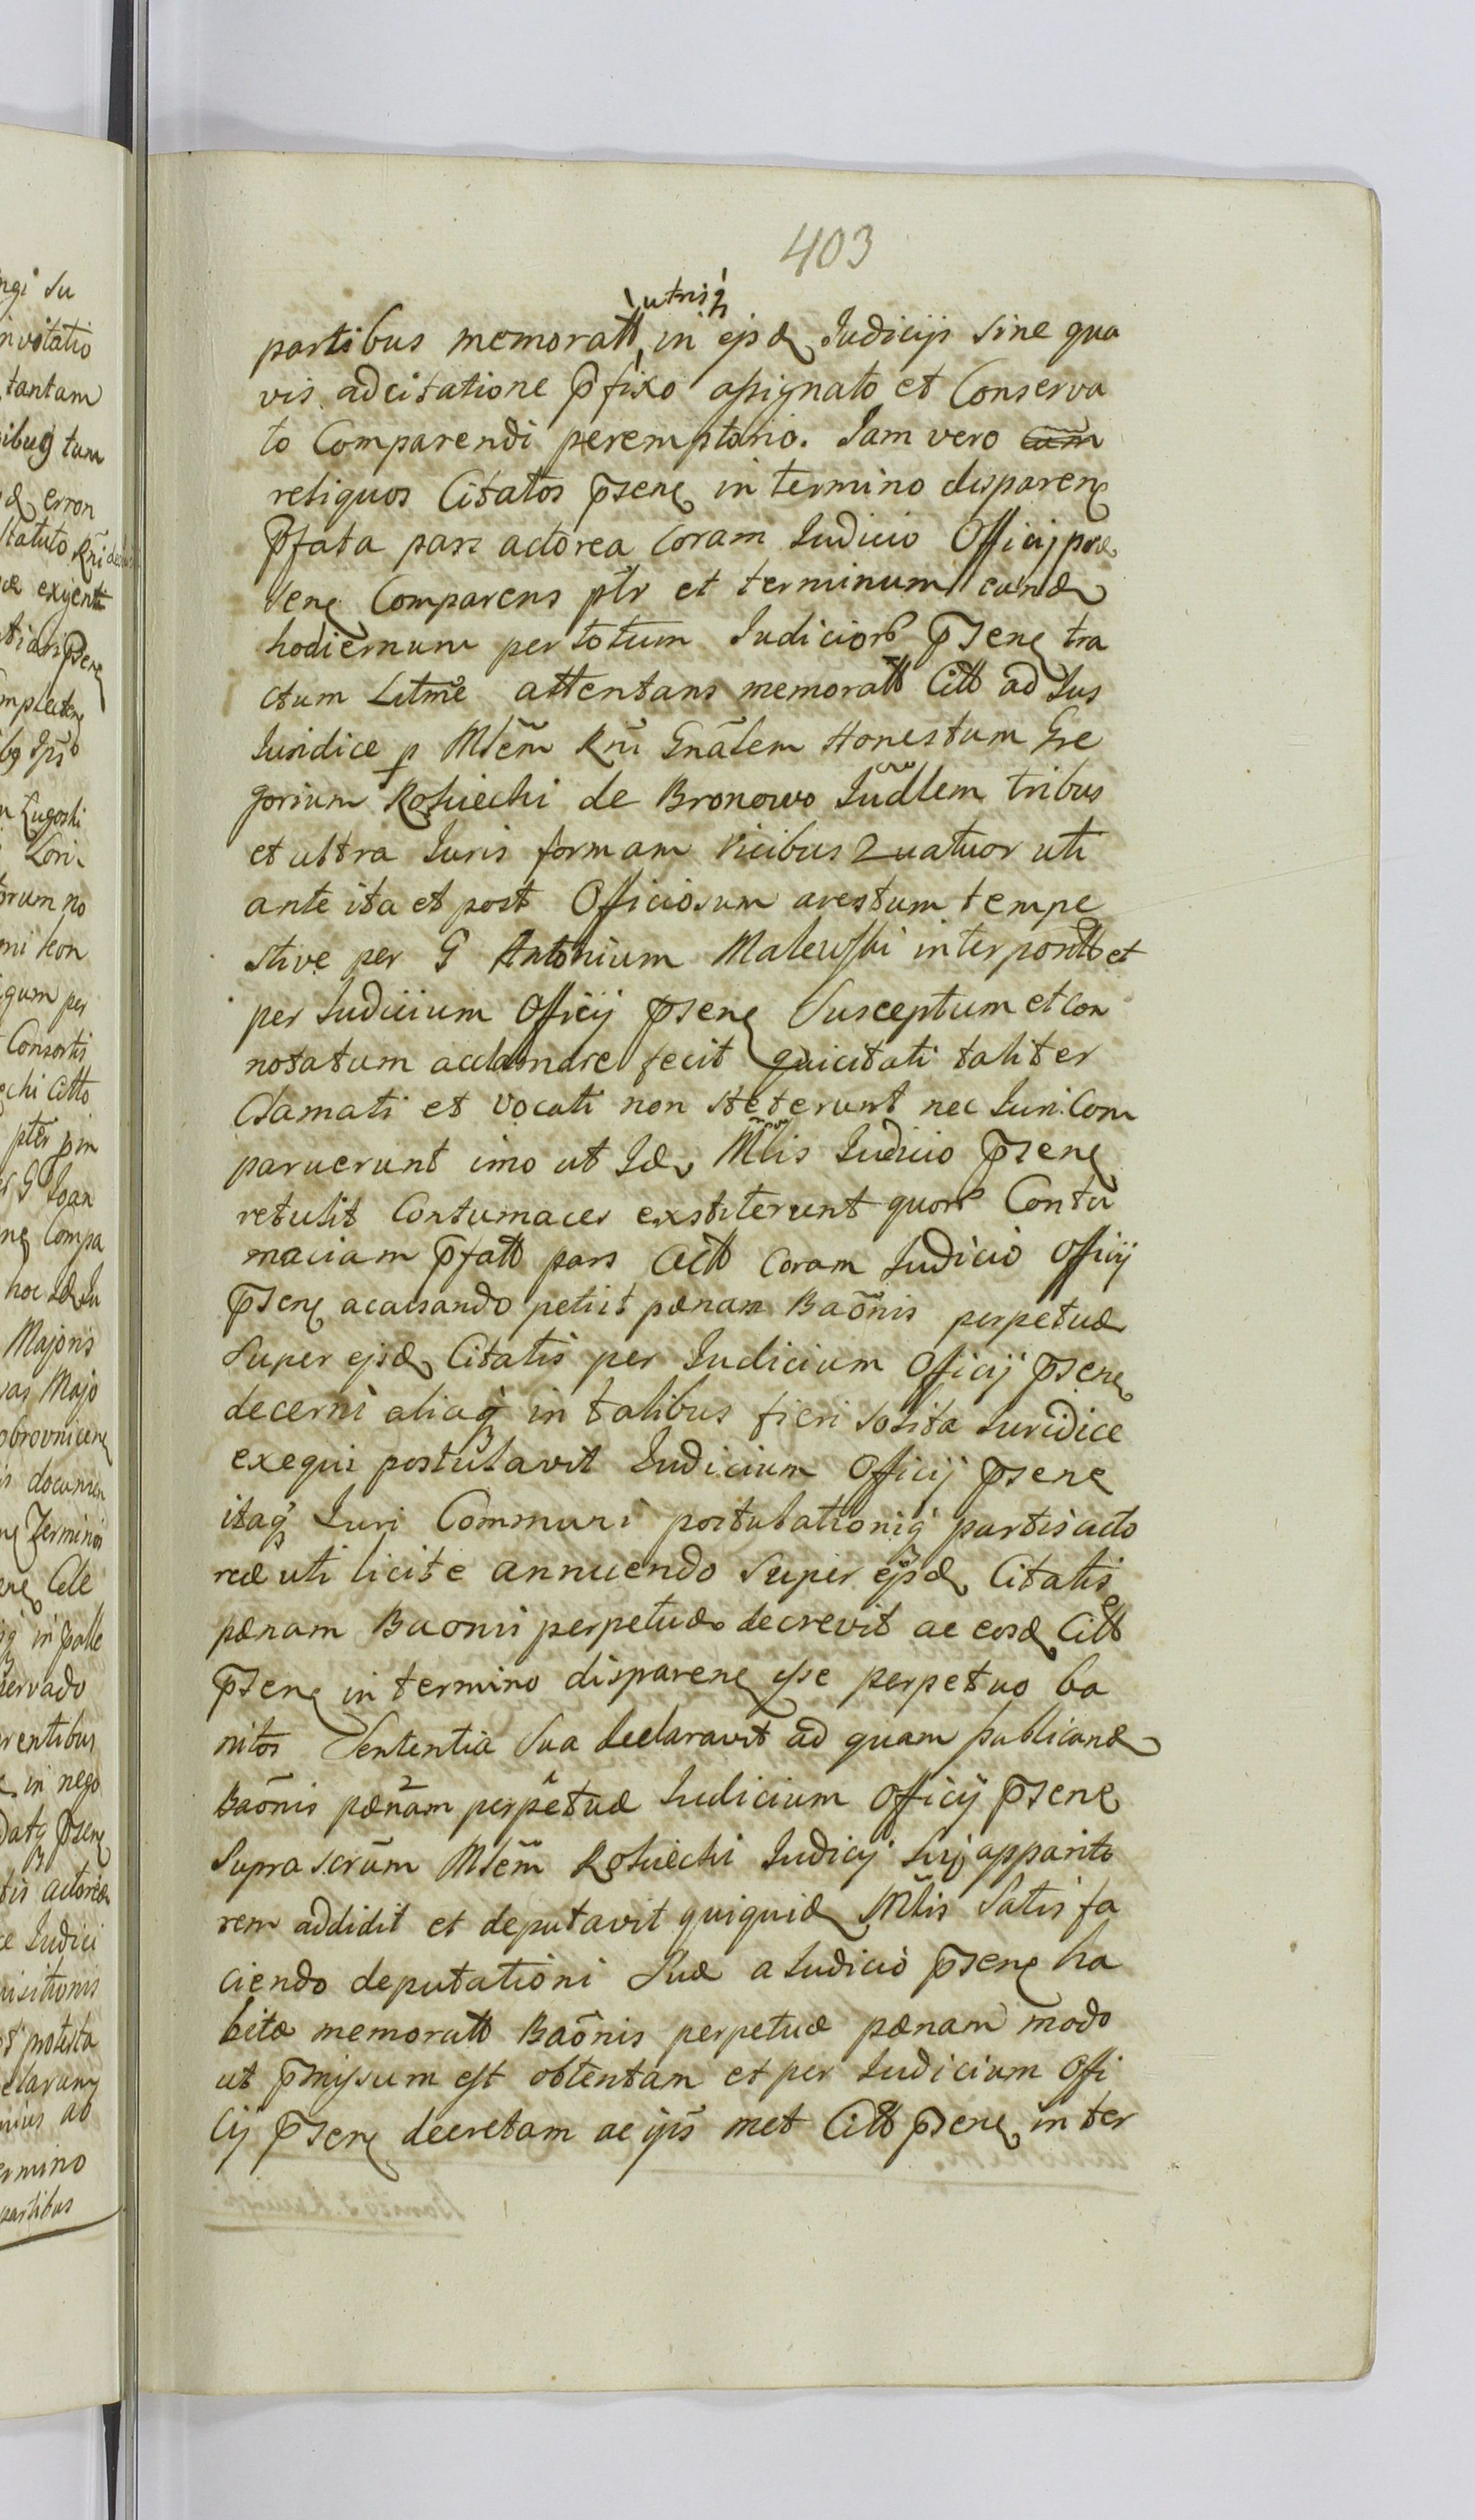 403
utrisq
partibus memoratt in ejsd Judicijs sine qua
vis adcitatione pfixo assignato et Conserva
to Comparendi peremptorio. Jam vero cum
reliquos Citatos psene in termino disparen
pfata pars actorea Coram Judicio Officij præ
sene Comparens ptr et terminum eund
hodiernum per totum Judicior psene tra
ctum Litme attentans memoratt Citt ad Jus
Juridice p Mtem Rni Gnalem Honestum Gre
gorium Rosiechi de Bronowo Judlem tribus
et ultra Juris formam vicibus Quatuor uti
ante ita et post Officiosum arestum tempe
stive per G Antonium Malewski interpontt et
per Judicium Officij psene Susceptum et con
notatum acclamare fecit qui citati taliter
Clamati et vocati non steterunt nec Juri Com
paruerunt imo ut Id Mtlis Judicio psene
retulit Contumaces exstiterunt quor Contu
maciam pfatt pars Actt Coram Judicio Officij
psene acausando petiit pænam Baonis perpetuæ
Super ejsd Citatis per Judicium Officij psene
decerni aliaq in talibus fieri solita Juridice
exequi postulavit Judicium Officij psene
itaq Juri Communi postulationiq partis acto
reæ uti licite annuendo Super ejsd Citatis
pænam Baonis perpetuæ decrevit ac eosd Citt
psene in termino disparene esse perpetuo ba
nitos Sententia Sua declaravit ad quam publicand
Baonis pænam perpetuæ Judicium Officij psene
Suprascrum Mtem Rosiechi Judicij Sui apparito
rem addidit et deputavit qui quid Mtlis Satis fa
ciendo deputationi Suæ a Judicio psene ha
bitæ memoratt Baonis perpetuæ pænam modo
ut pmissum est obtentam et per Judicium Offi
cij psene decretam ac ijs met Citt psene in ter